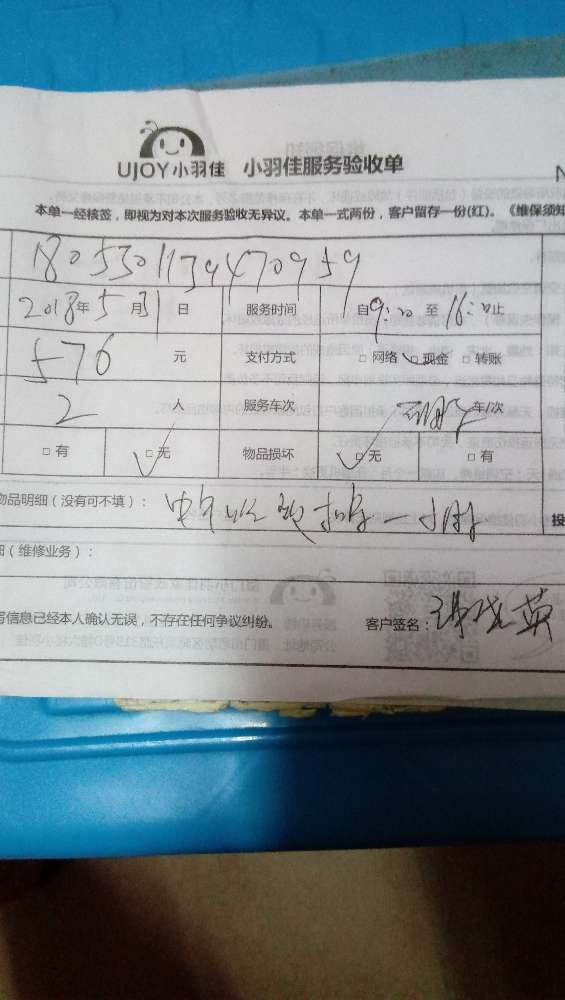 UJOY小羽佳 小羽佳服务验收单
N
本单一经核签，即视为对本次服务验收无异议。本单一式两份，客户留存一份(红)。《维保须知
2018年5月31日 服务时间 自9:00至16:00止
576元 支付方式 □网络 □现金 □转账
2人 服务车次 车/次
□有 □无 物品损坏 □无 □有
物品明细（没有可不填）： 中午吃饭扣除一小时
细（维修业务）：
写信息已经本人确认无误，不存在任何争议纠纷。 客户签名：